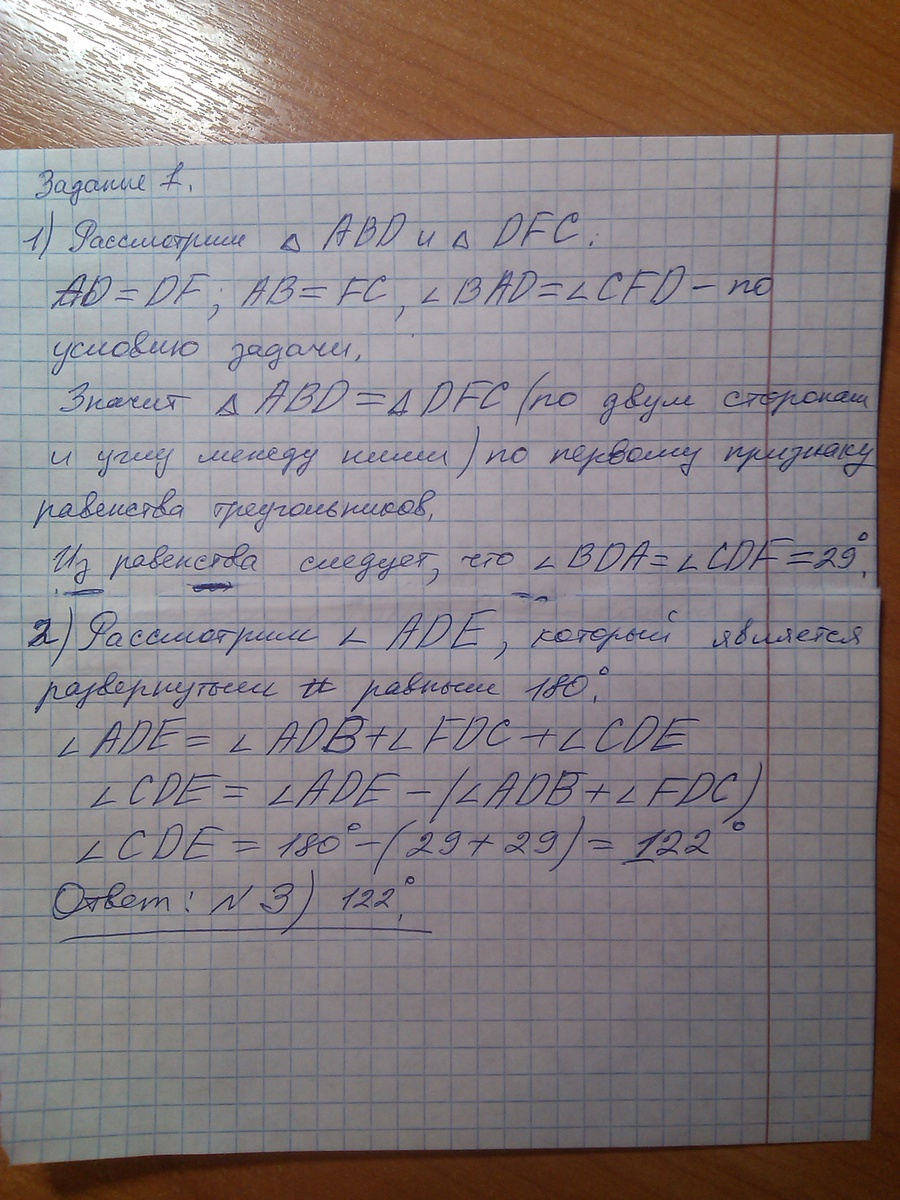 Задание 1.
1) Рассмотрим △ ABD и △ DFC.
AD = DF; AB = FC, ∠BAD = ∠CFD – по
условию задачи.
Значит △ ABD = △ DFC (по двум сторонам
и углу между ними) по первому признаку
равенства треугольников.
Из равенства следует, что ∠BDA = ∠CDF = 29°.
2) Рассмотрим ∠ ADE, который является
развернутым и равным 180°.
∠ADE = ∠ADB + ∠FDC + ∠CDE
∠CDE = ∠ADE – (∠ADB + ∠FDC)
∠CDE = 180° – (29 + 29) = 122°
Ответ: N 3) 122°.